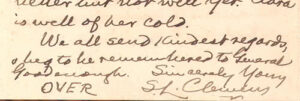 better but not well yet. Clara
is well of her cold.
We all send kindest regards,
& beg to be remembered to General
Goodenough. Sincerely Yours
OVER S L Clemens